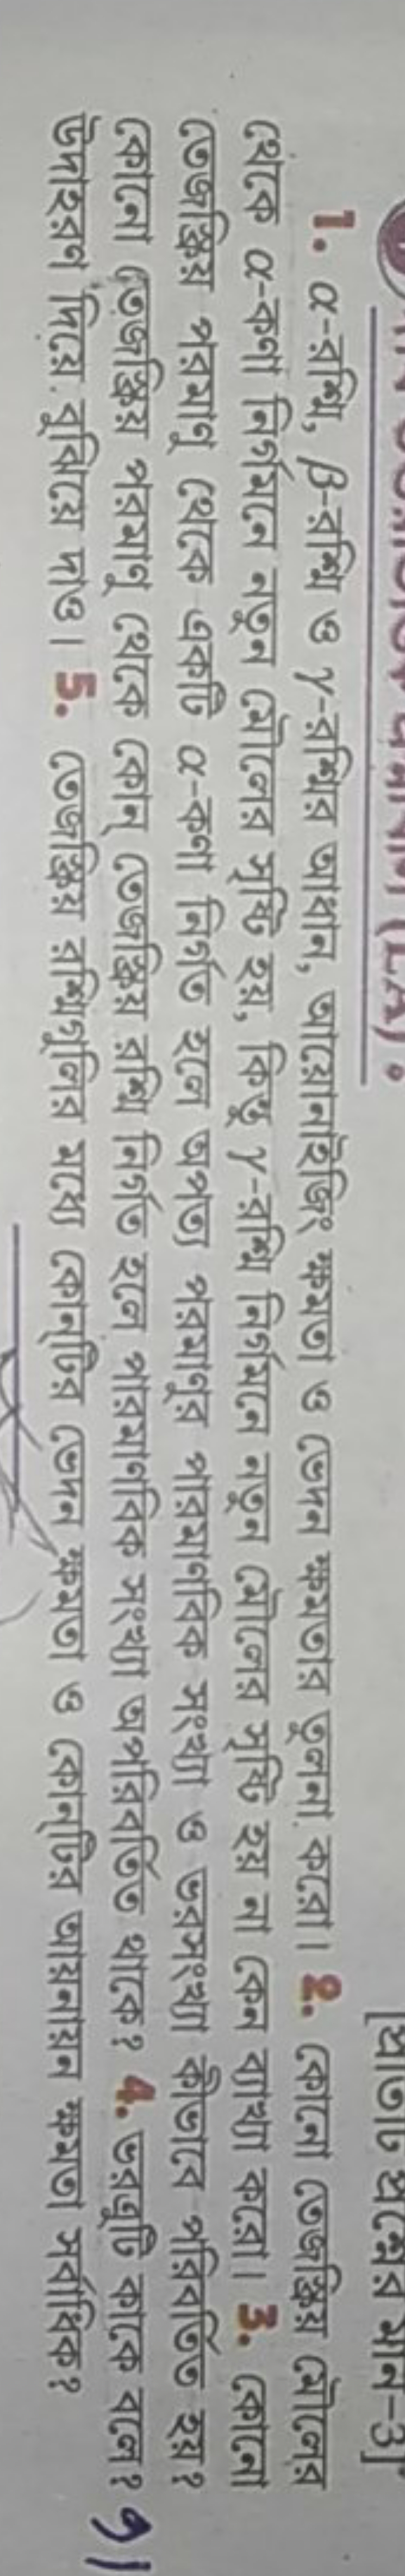 (LA) :
[প্রতিটি প্রশ্নের মান-3]
1. α-রশ্মি, β-রশ্মি ও γ-রশ্মির আধান, আয়োনাইজিং ক্ষমতা ও ভেদন ক্ষমতার তুলনা করো। 2. কোনো তেজস্ক্রিয় মৌলের
থেকে α-কণা নির্গমনে নতুন মৌলের সৃষ্টি হয়, কিন্তু γ-রশ্মি নির্গমনে নতুন মৌলের সৃষ্টি হয় না কেন ব্যাখ্যা করো। 3. কোনো
তেজস্ক্রিয় পরমাণু থেকে একটি α-কণা নির্গত হলে অপত্য পরমাণুর পারমাণবিক সংখ্যা ও ভরসংখ্যা কীভাবে পরিবর্তিত হয়?
কোনো তেজস্ক্রিয় পরমাণু থেকে কোন্ তেজস্ক্রিয় রশ্মি নির্গত হলে পারমাণবিক সংখ্যা অপরিবর্তিত থাকে? 4. ভরত্রুটি কাকে বলে?
উদাহরণ দিয়ে বুঝিয়ে দাও। 5. তেজস্ক্রিয় রশ্মিগুলির মধ্যে কোন্‌টির ভেদন ক্ষমতা ও কোন্‌টির আয়নায়ন ক্ষমতা সর্বাধিক?